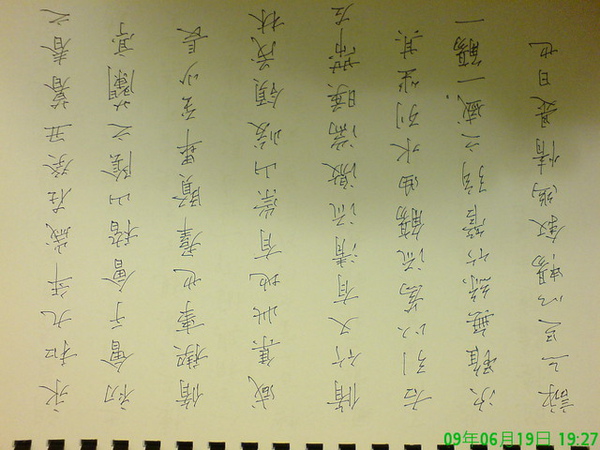 永和九年歲在癸丑暮春之
初會于會稽山陰之蘭亭
脩稧事也羣賢畢至少長
咸集此地有崇山峻領茂林
脩竹又有清流激湍暎帶左
右引以為流觴曲水列坐其
次雖無絲竹管弦之盛一觴一
詠亦足以暢叙幽情是日也
09年06月19日 19:27